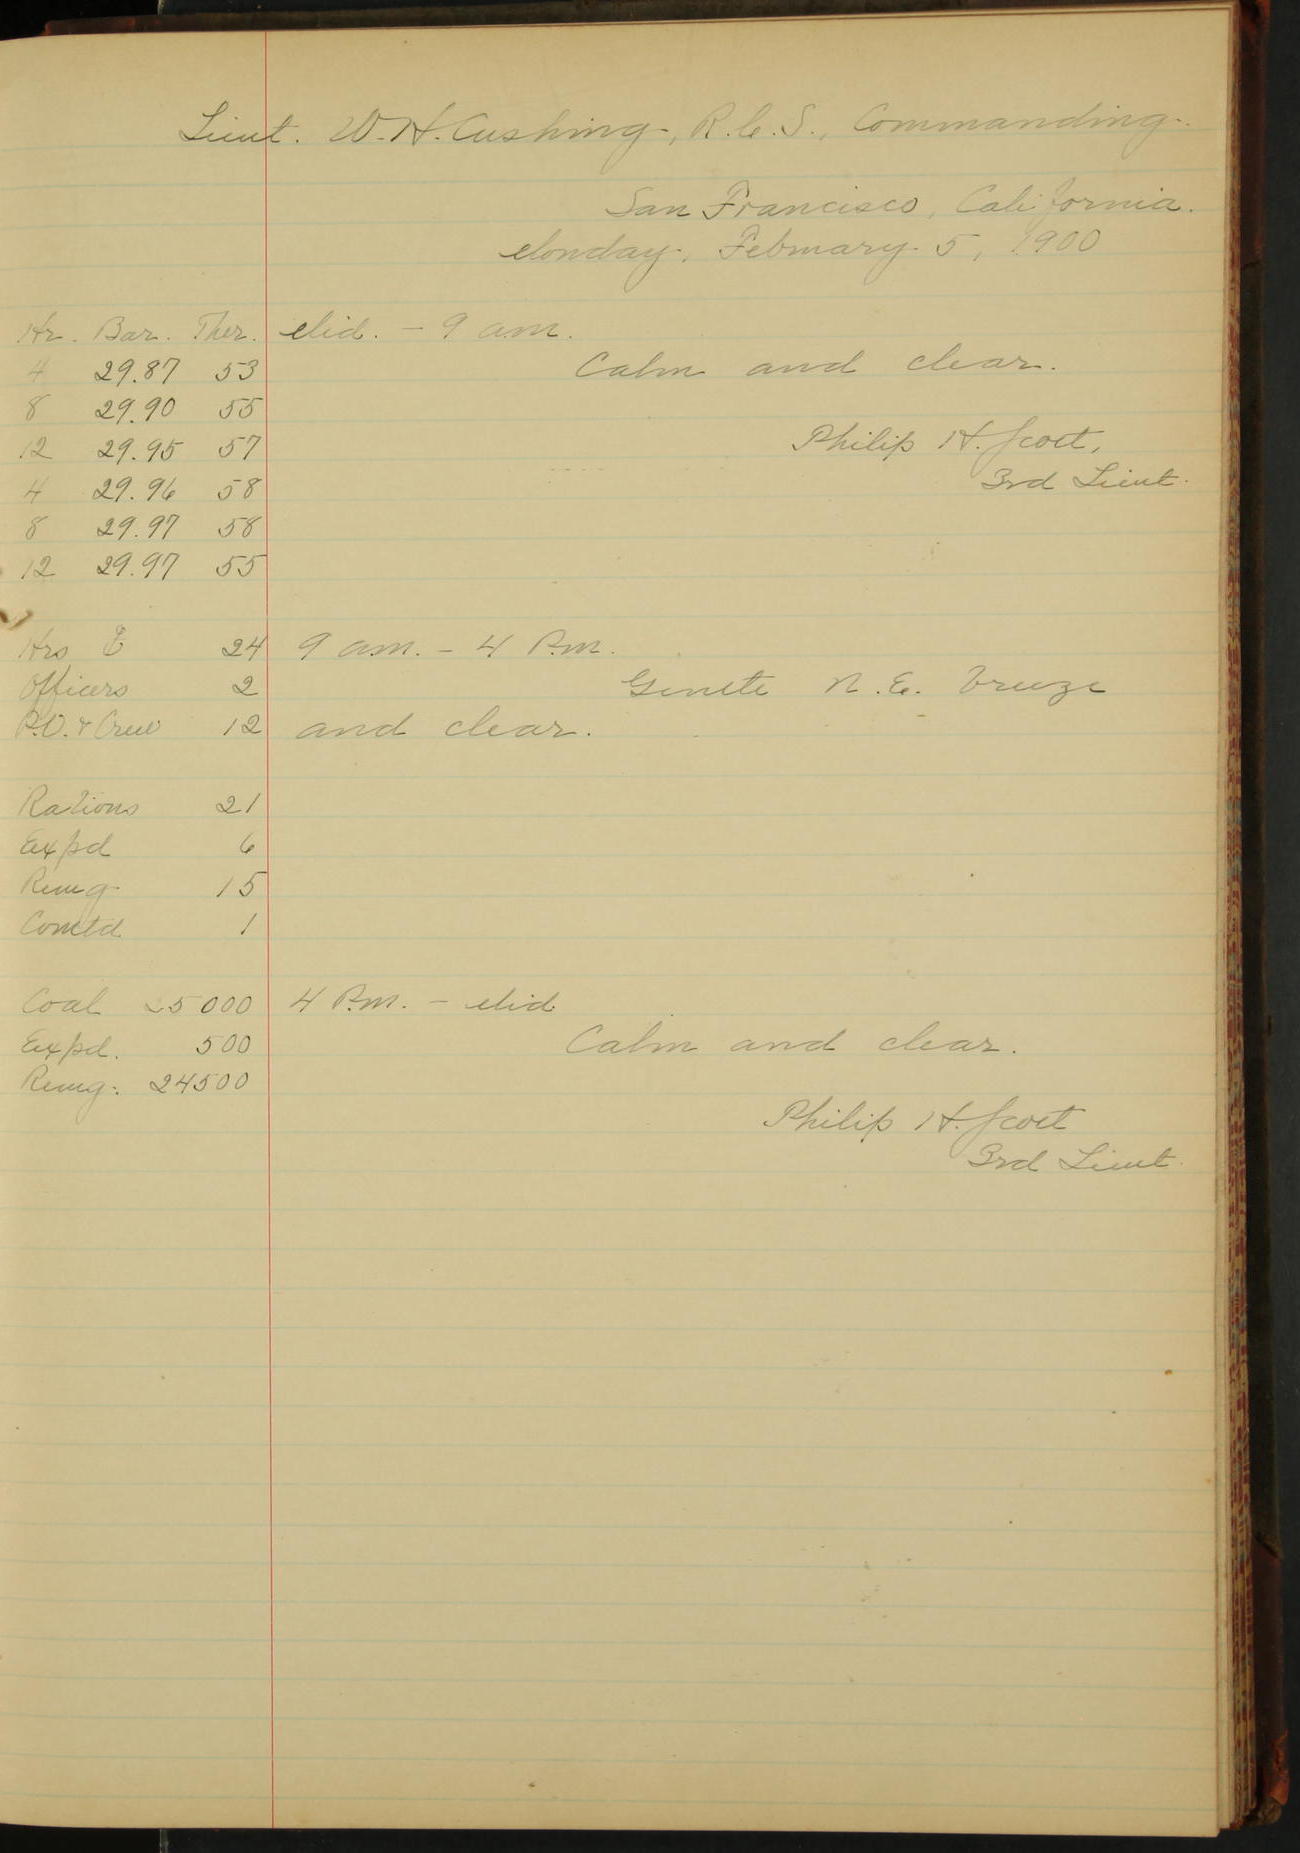 Lieut. W. H. Cushing, R.C.S., Commanding.
San Francisco, California.
Monday, February 5, 1900
Hr. Bar. Ther. Mid. - 9 a.m.
4 29.87 53 Calm and clear.
8 29.90 55
12 29.95 57 Philip H. Scott,
4 29.96 58 3rd Lieut.
8 29.97 58
12 29.97 55
Hrs 24 9 a.m. - 4 P.m.
Officers 2 Gentle N.E. breeze
P.O. & Crew 12 and clear.
Rations 21
Expd 6
Remg. 15
Comtd 1
Coal 25000 4 P.m. - Mid
Expd. 500 Calm and clear.
Remg. 24500
Philip H. Scott
3rd Lieut.